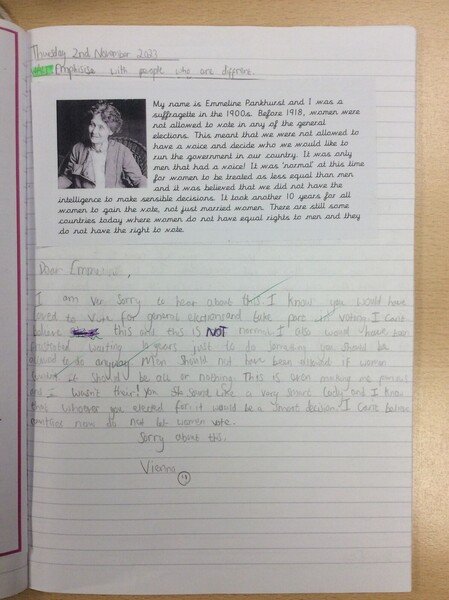 Thursday 2nd November 2023
WALT Emphisise with people who are different.
My name is Emmeline Pankhurst and I was a
suffragette in the 1900s. Before 1918, women were
not allowed to vote in any of the general
elections. This meant that we were not allowed to
have a voice and decide who we would like to
run the government in our country. It was only
men that had a voice! It was 'normal' at this time
for women to be treated as less equal than men
and it was believed that we did not have the
intelligence to make sensible decisions. It took another 10 years for all
women to gain the vote, not just married women. There are still some
countries today where women do not have equal rights to men and they
do not have the right to vote.
Dear Emmeline,
I am very sorry to hear about this I know you would have
loved to vote for general elections and take part in voting. I can't
believe this and this is NOT normal. I also would have been
frustrated waiting 10 years just to do something you should be
allowed to do anyway. Men should not have been allowed if women
it should be all or nothing. This is even making me furious
and I wasn't their! You sound like a very smart lady and I know
that whoever you elected for it would be a smart decision. I can't believe
countries now do not let women vote.
Sorry about this,
Vienna